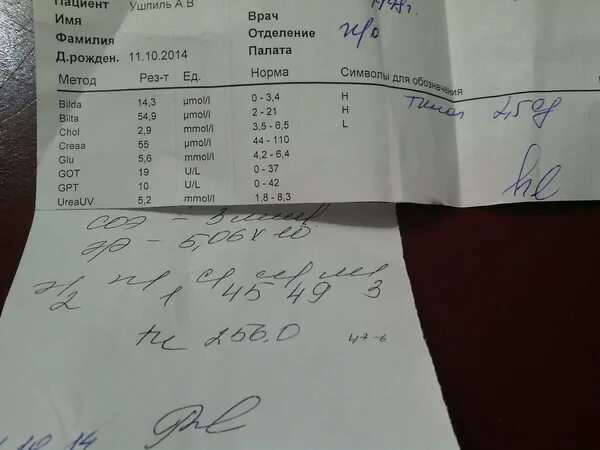 Пациент Ушпиль А.В
Имя Врач
Фамилия Отделение п/о
Д.рожден. 11.10.2014 Палата
Метод Рез-т Ед. Норма Символы для обозначения
Bilda 14,3 µmol/l 0 - 3,4 H
Bilta 54,9 µmol/l 2 - 21 H
Chol 2,9 mmol/l 3,5 - 6,5 L
Creaa 55 µmol/l 44 - 110
Glu 5,6 mmol/l 4,2 - 6,4
GOT 19 U/L 0 - 37
GPT 10 U/L 0 - 42
UreaUV 5,2 mmol/l 1,8 - 8,3
тимол 2,5 ед
СОЭ - 3 мм/ч
Эр - 5,06 х 10
Э П С Л М
2 1 45 49 3
тр 256.0 47-6